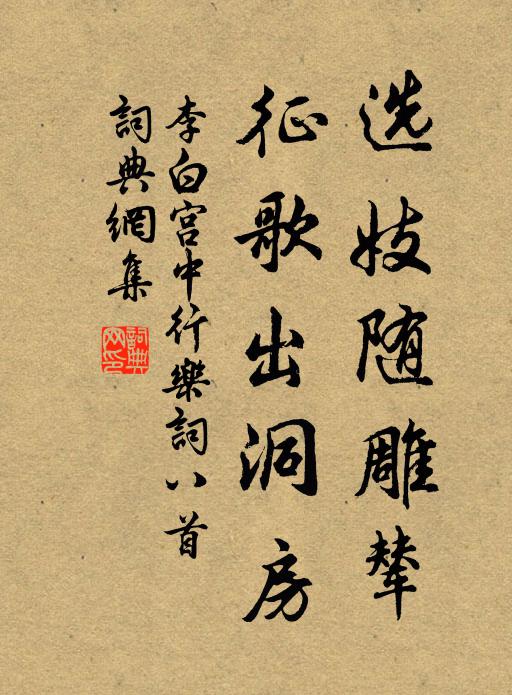 选妓随雕辇
征歌出洞房
李白宫中行樂詞八首
詞典網集
詞典網印